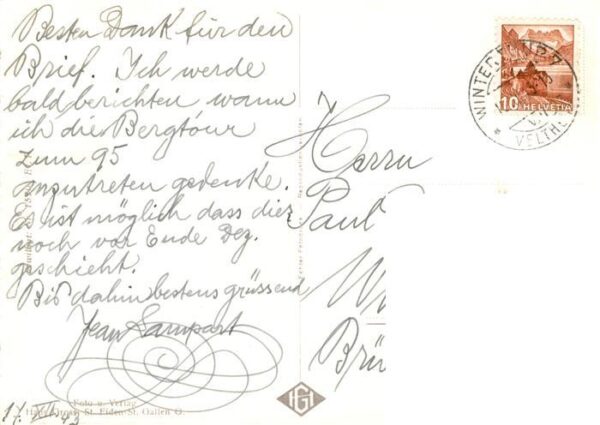 Besten Dank für den
Brief. Ich werde
bald berichten wann
ich die Bergtour
zum 95
anzutreten gedenke.
Es ist möglich dass dies
noch vor Ende Dez.
geschieht.
Bis dahin bestens grüssend
Jean Lampart
17. VIII. 43
Foto u. Verlag
Hans Gross, St. Fiden-St. Gallen O.
HG
10 HELVETIA
WINTERTHUR 7
VELTH
Herrn
Paul
Wi
Brü